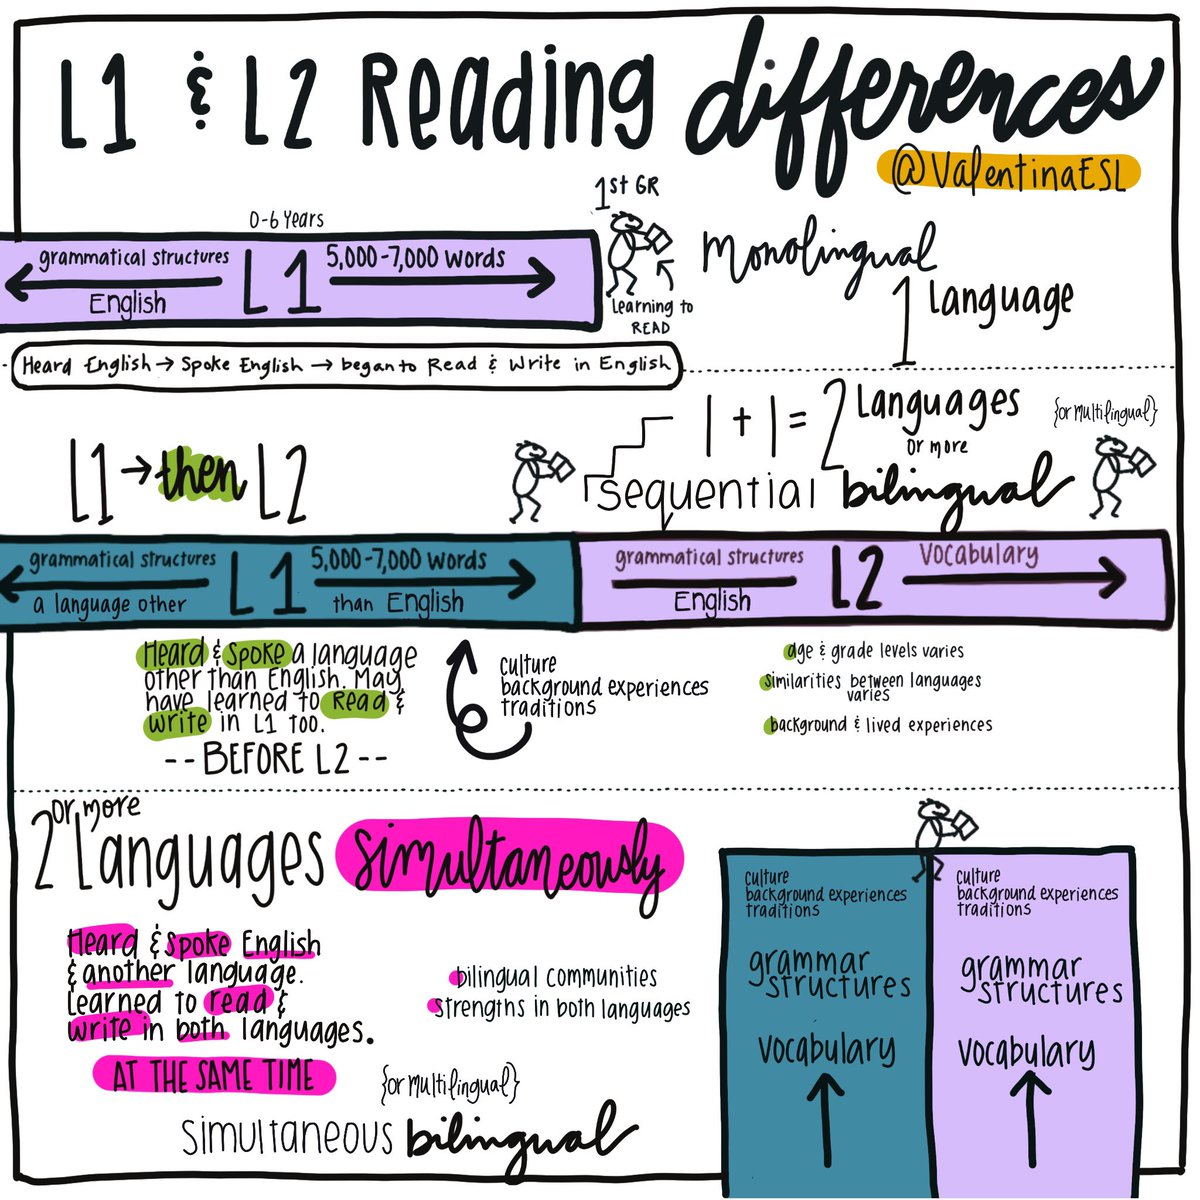 L1 & L2 Reading differences
@ValentinaESL
0-6 Years
1st GR
grammatical structures L1 5,000-7,000 words
English
Learning to
READ
Monolingual
1 Language
Heard English → Spoke English → began to Read & Write in English
1 + 1 = 2 Languages
or more
{or multilingual}
L1 → then L2
sequential bilingual
grammatical structures L1 5,000-7,000 words
a language other than English
grammatical structures L2 vocabulary
English
Heard & Spoke a language
other than English. May
have learned to Read &
write in L1 too.
--BEFORE L2--
culture
background experiences
traditions
age & grade levels varies
similarities between languages
varies
background & lived experiences
2 or more Languages simultaneously
Heard & spoke English
& another language.
Learned to read &
write in both languages.
AT THE SAME TIME
bilingual communities
strengths in both languages
{or multilingual}
simultaneous bilingual
culture
background experiences
traditions
grammar
structures
vocabulary
culture
background experiences
traditions
grammar
structures
vocabulary